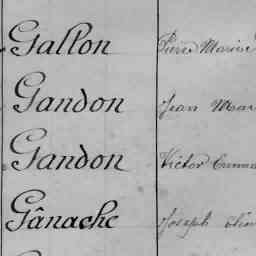 Gallon Pierre Marie
Gandon Jean Mar
Gandon Victor
Gânache Joseph